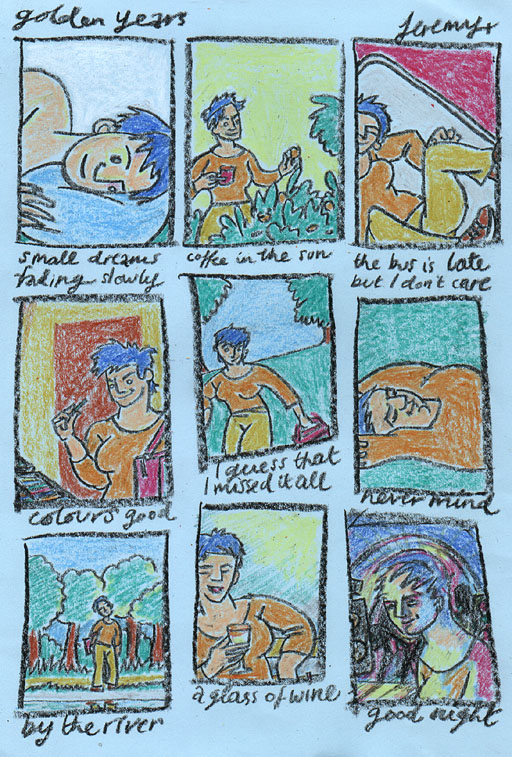 golden years
Jeremy
small dreams
fading slowly
coffee in the sun
the bus is late
but I don't care
colours good
I guess that
I missed it all
never mind
by the river
a glass of wine
good night